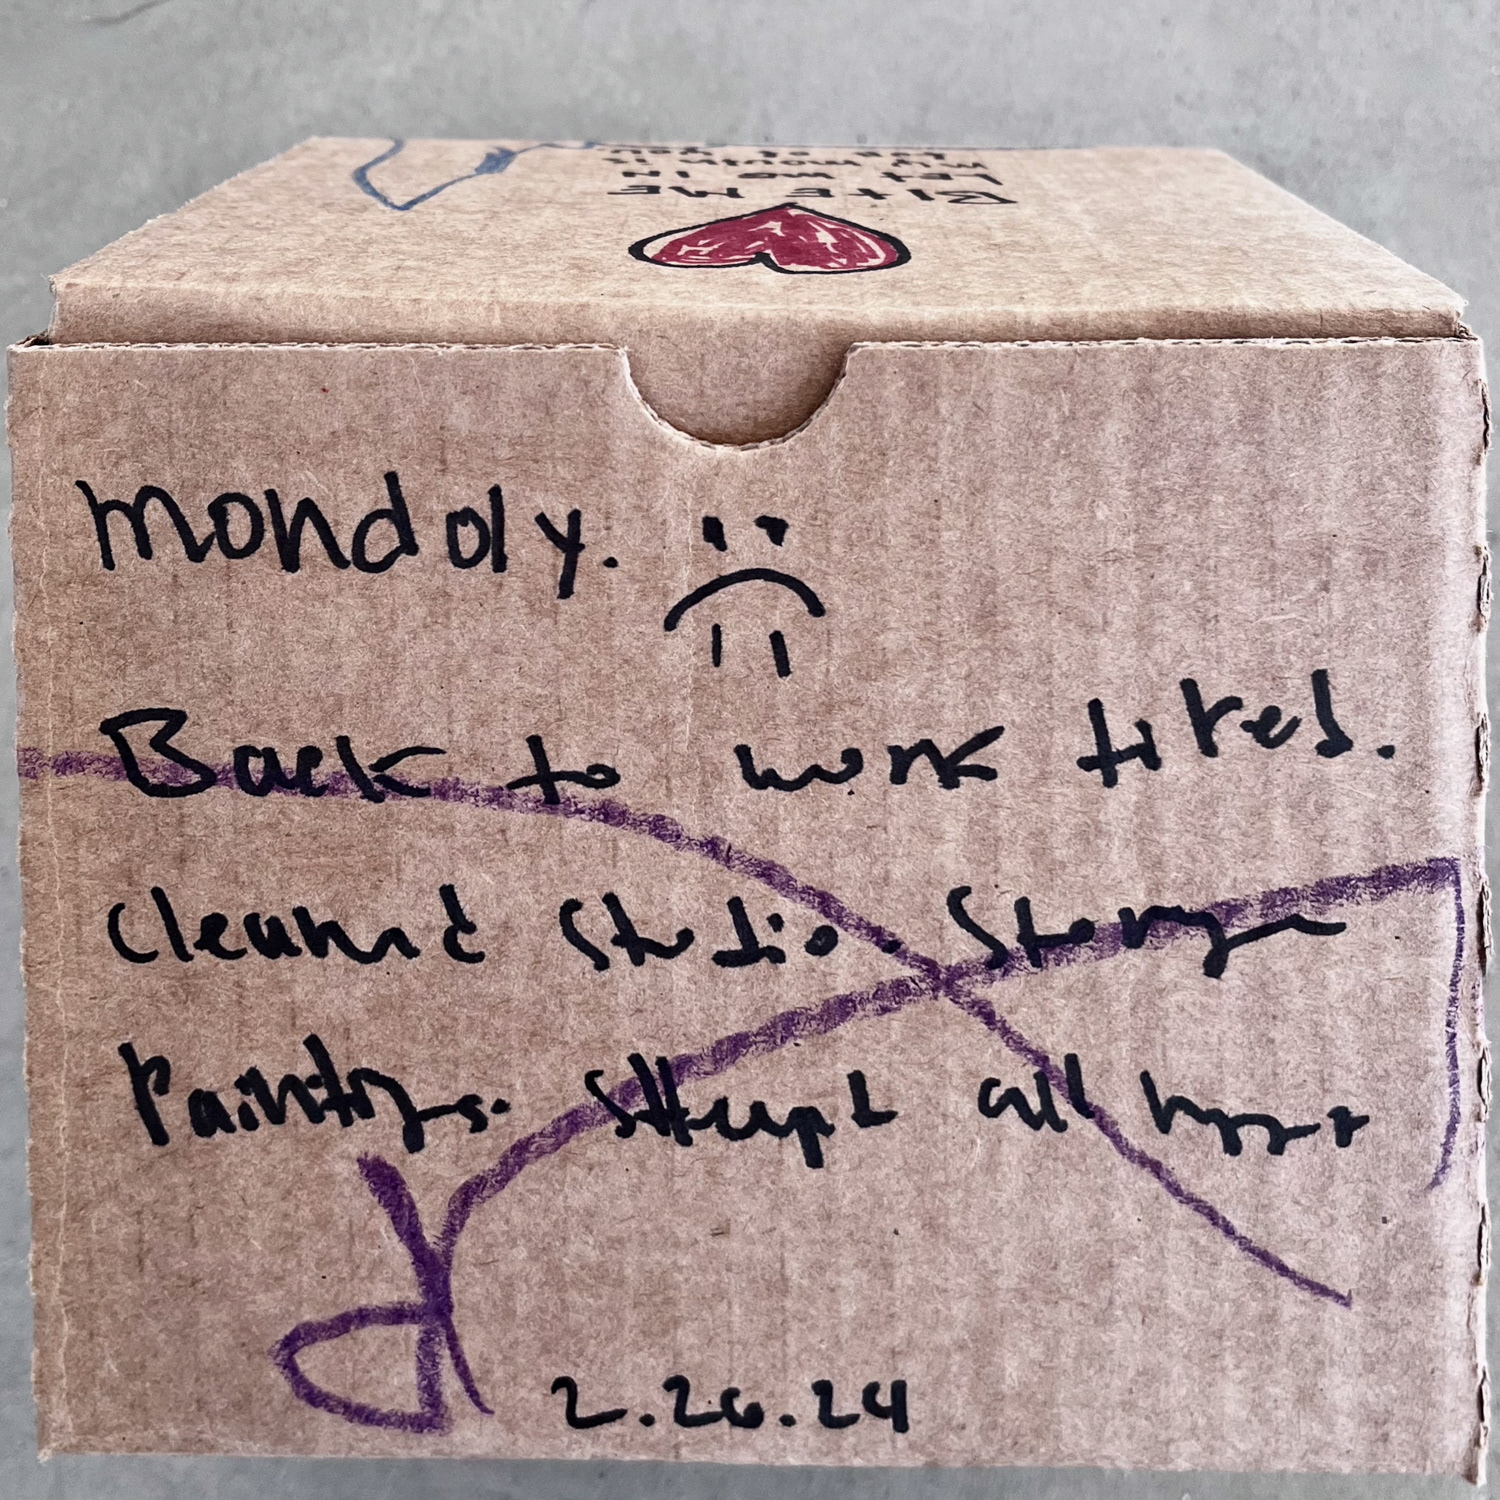 BITE ME
Let me in
my mouth is
Monday.
Back to work tired.
Cleaned Studio. Storage
Paintings. Slept all
2.26.24